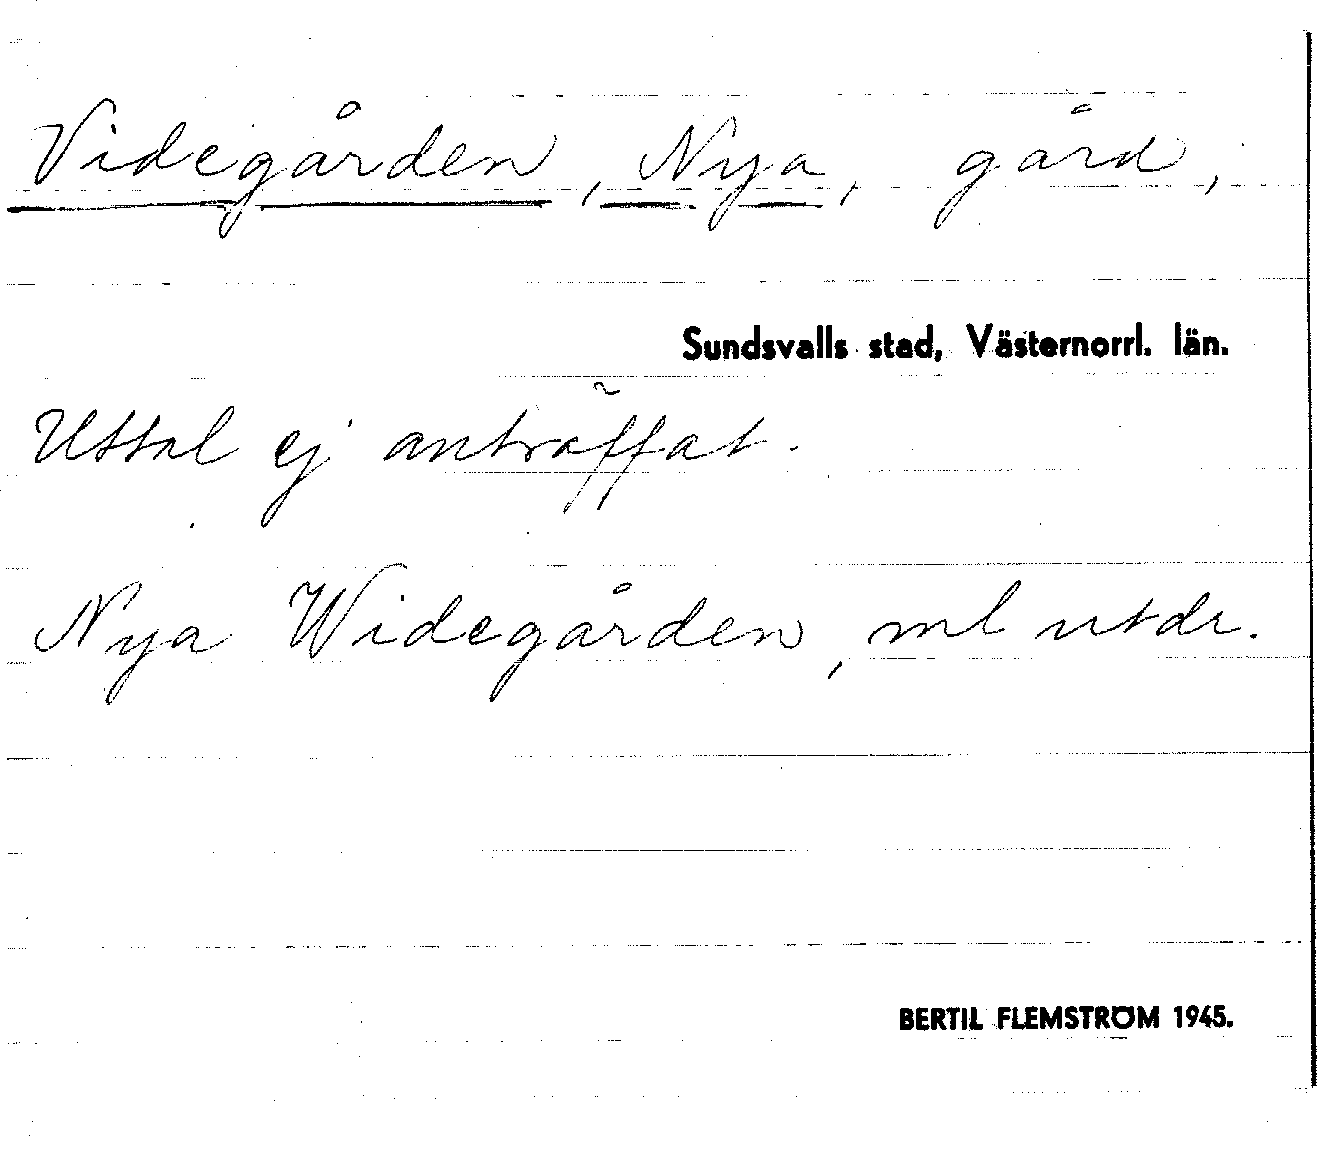 Videgården, Nya, gård,
Sundsvalls stad, Västernorrl. län.
Uttal ej anträffat.
Nya Widegården, ml utdr.
BERTIL FLEMSTRÖM 1945.